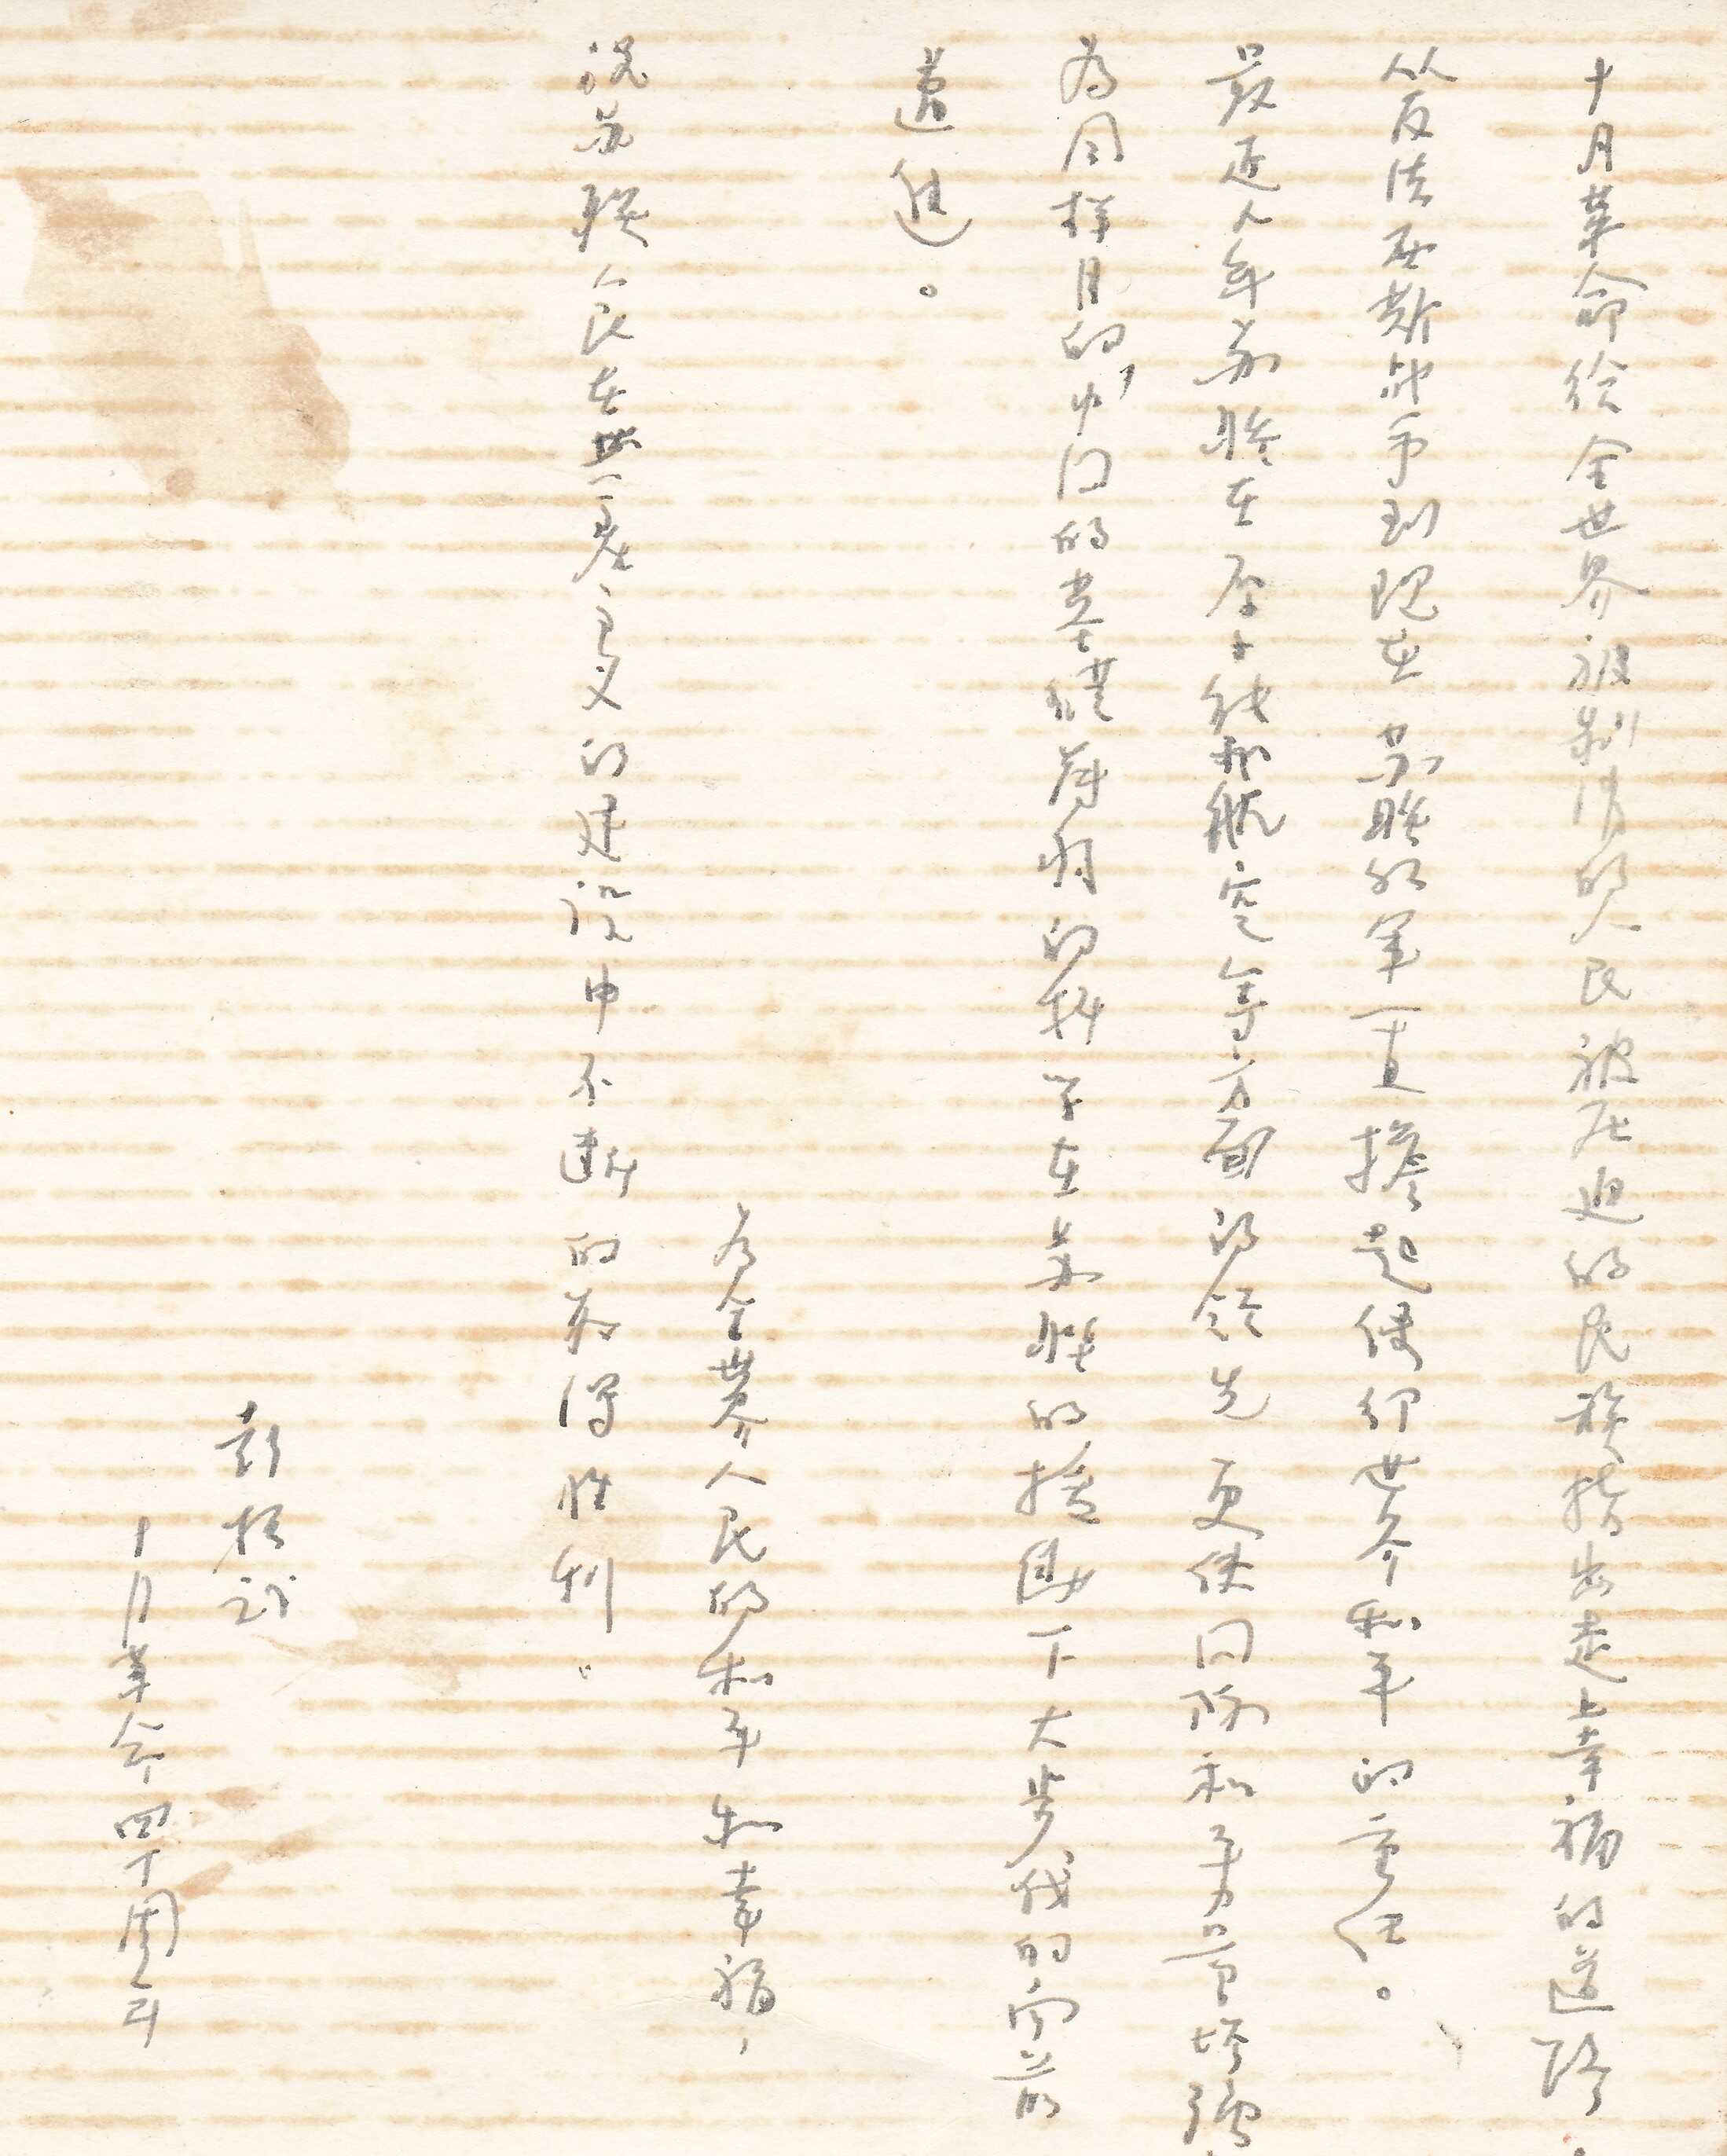 十月革命给全世界被剥削的人民被压迫的民族指出走上幸福的道路.
从反法西斯战争到现在苏联红军一直担起保卫世界和平的重任。
最近几年苏联在原子能和航空等方面的领先更使国际和平力量增强.
为同样目的，中国的落后的科学在苏联的援助下大步伐的向前
迈进。
为全世界人民的和平和幸福，
祝苏联人民在共产主义的建设中不断的取得胜利.
彭桓武
十月革命四十周年